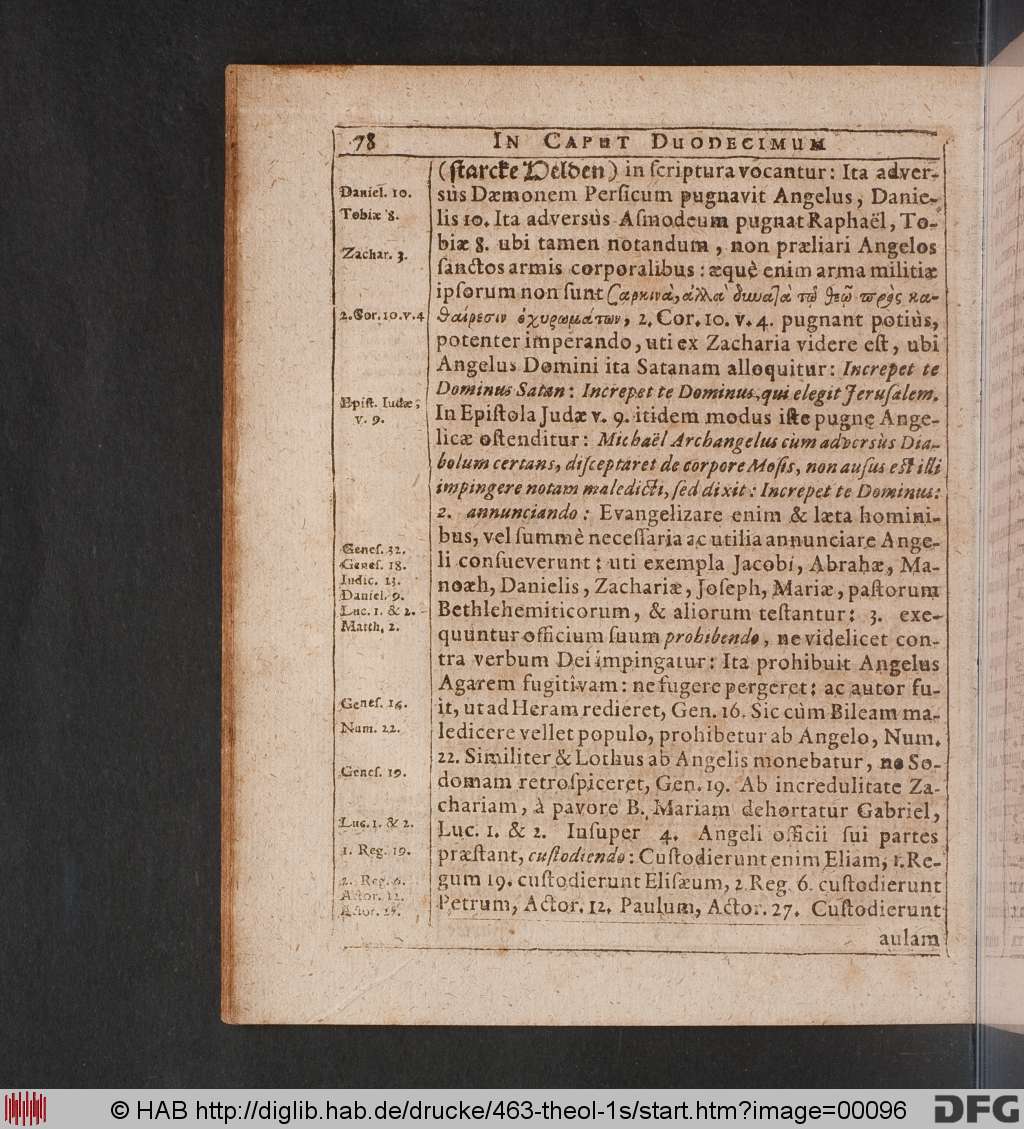 78 IN CAPUT DUODECIMUM
(ſtarcke Helden) in ſcriptura vocantur: Ita adver-
Daniel. 10.
sùs Dæmonem Perſicum pugnavit Angelus, Danie-
Tobiæ 8.
lis 10. Ita adversùs Aſmodeum pugnat Raphaël, To-
biæ 8. ubi tamen notandum, non præliari Angelos
Zachar. 3.
ſanctos armis corporalibus: æquè enim arma militiæ
ipſorum non ſunt σαρκινὰ, ἀλλὰ δυναϊὰ τῷ θεῷ πρὸς κα-
2. Cor. 10. v. 4
θαίρεσιν ὀχυρωμάτων, 2. Cor. 10. v. 4. pugnant potiùs,
potenter imperando, uti ex Zacharia videre eſt, ubi
Angelus Domini ita Satanam alloquitur: Increpet te
Dominus Satan: Increpet te Dominus, qui elegit Jeruſalem.
Epiſt. Iudæ,
v. 9.
In Epiſtola Judæ v. 9. itidem modus iſte pugnę Ange-
licæ oſtenditur: Michaël Archangelus cùm adversùs Dia-
bolum certans, diſceptaret de corpore Moſis, non auſus eſt illi
impingere notam maledicti, ſed dixit: Increpet te Dominus:
2. annunciando: Evangelizare enim & læta homini-
bus, vel ſummè neceſſaria ac utilia annunciare Ange-
Geneſ. 32.
Geneſ. 18.
Iudic. 13.
Daniel. 9.
Luc. 1. & 2.
Matth. 2.
li conſueverunt: uti exempla Jacobi, Abrahæ, Ma-
noæh, Danielis, Zachariæ, Joſeph, Mariæ, paſtorum
Bethlehemiticorum, & aliorum teſtantur: 3. exe-
quuntur officium ſuum prohibendo, ne videlicet con-
tra verbum Dei impingatur: Ita prohibuit Angelus
Agarem fugitivam: ne fugere pergeret: ac autor fu-
Geneſ. 16.
it, ut ad Heram rediret, Gen. 16. Sic cùm Bileam ma-
Num. 22.
ledicere vellet populo, prohibetur ab Angelo, Num.
22. Similiter & Lothus ab Angelis monebatur, ne So-
Geneſ. 19.
domam retroſpiceret, Gen. 19. Ab incredulitate Za-
chariam, à pavore B. Mariam dehortatur Gabriel,
Luc. 1. & 2.
Luc. 1. & 2. Inſuper 4. Angeli officii ſui partes
1. Reg. 19.
præſtant, cuſtodiendo: Cuſtodierunt enim Eliam, 1. Re-
2. Reg. 6.
gum 19. cuſtodierunt Eliſæum, 2. Reg. 6. cuſtodierunt
Actor. 12.
Actor. 27.
Petrum, Actor. 12. Paulum, Actor. 27. Cuſtodierunt
aulam
© HAB http://diglib.hab.de/drucke/463-theol-1s/start.htm?image=00096 DFG